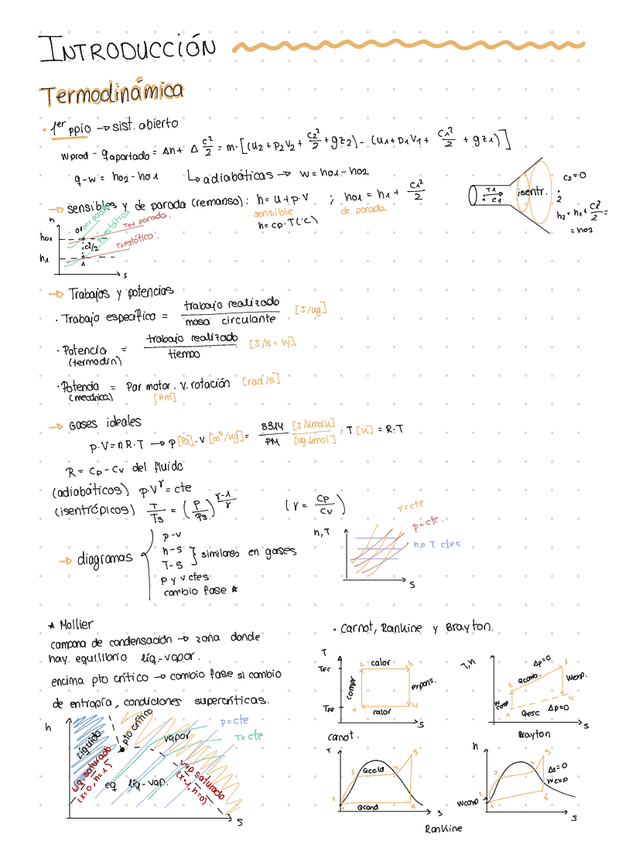 INTRODUCCIÓN
Termodinámica
• 1er ppio → sist. abierto
Wprod - qaportado = Δh + Δ c²/2 = m·[(u2 + p2v2 + c2²/2 + gz2) - (u1 + p1v1 + c1²/2 + gz1)]
q-w = ho2 - ho1 ↳ adiabáticas → w = ho1 - ho2
→ sensibles y de parada (remanso): h = u + p·v ; ho1 = h1 + c1²/2
sensible de parada
h = cp·T(°C)
T1 c1 isentr. c2=0
2
h2 = h1 + c1²/2 =
= ho2
h
ho1
h1
o1
c²/2
1
To1 parada
T1 estático
s
→ Trabajos y potencias
· Trabajo específico = trabajo realizado / masa circulante [J/kg]
· Potencia (termodin) = trabajo realizado / tiempo [J/s = W]
· Potencia (mecánica) = Par motor · v. rotación [rad/s]
[Nm]
→ Gases ideales
p·V = n R·T → p [Pa]·v [m³/kg] = 8314 [J/kmolK] / PM [kg/kmol] · T [K] = R·T
R = cp - cv del fluido
(adiabáticos) p·V^γ = cte
(isentrópicos) T/Ts = (P/Ps)^(γ-1/γ) (γ = cp/cv)
→ diagramas
p-v
h-s
T-s
} similares en gases
p y v ctes
cambio fase *
h,T
v=cte
p=cte.
h o T ctes
s
* Mollier
campana de condensación → zona donde
hay equilibrio líq-vapor.
encima pto crítico → cambio fase si cambio
de entropía, condiciones supercríticas.
h
líquido
pto crítico
vapor
p=cte
T=cte
líq-saturado
(x=0, h=1)
eq líq-vap.
vap saturado
(x=1, h=0)
s
· Carnot, Rankine y Brayton.
T
TFC
TFF
2 calor 3
compr
expans.
1 calor 4
s
carnot.
T,h
Δp=0
Qcomb.
Wexp.
Wcomp
Qesc Δp=0
1 2 3 4
s
Brayton
T
Qcald
Qcond
s
h
Δs=0
Wexp
Wcomp
s
Rankine